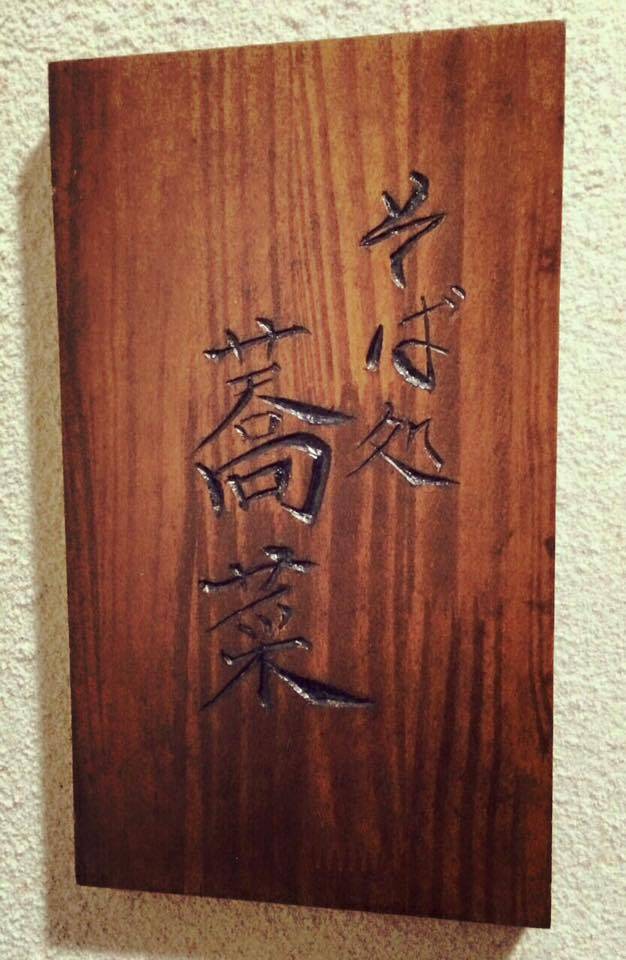 そば処
蕎菜